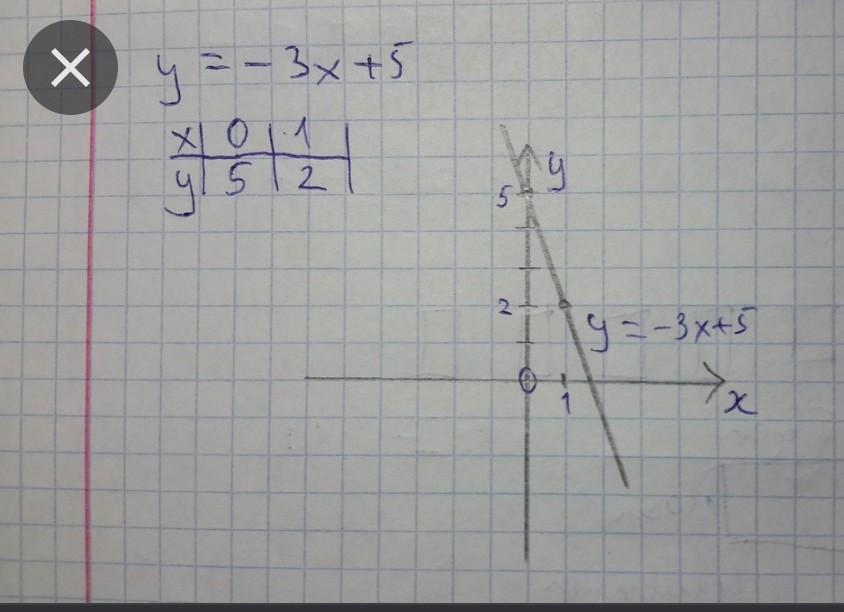 y = -3x +5
x | 0 | 1
y | 5 | 2
y
5
2
y = -3x+5
0
1
x